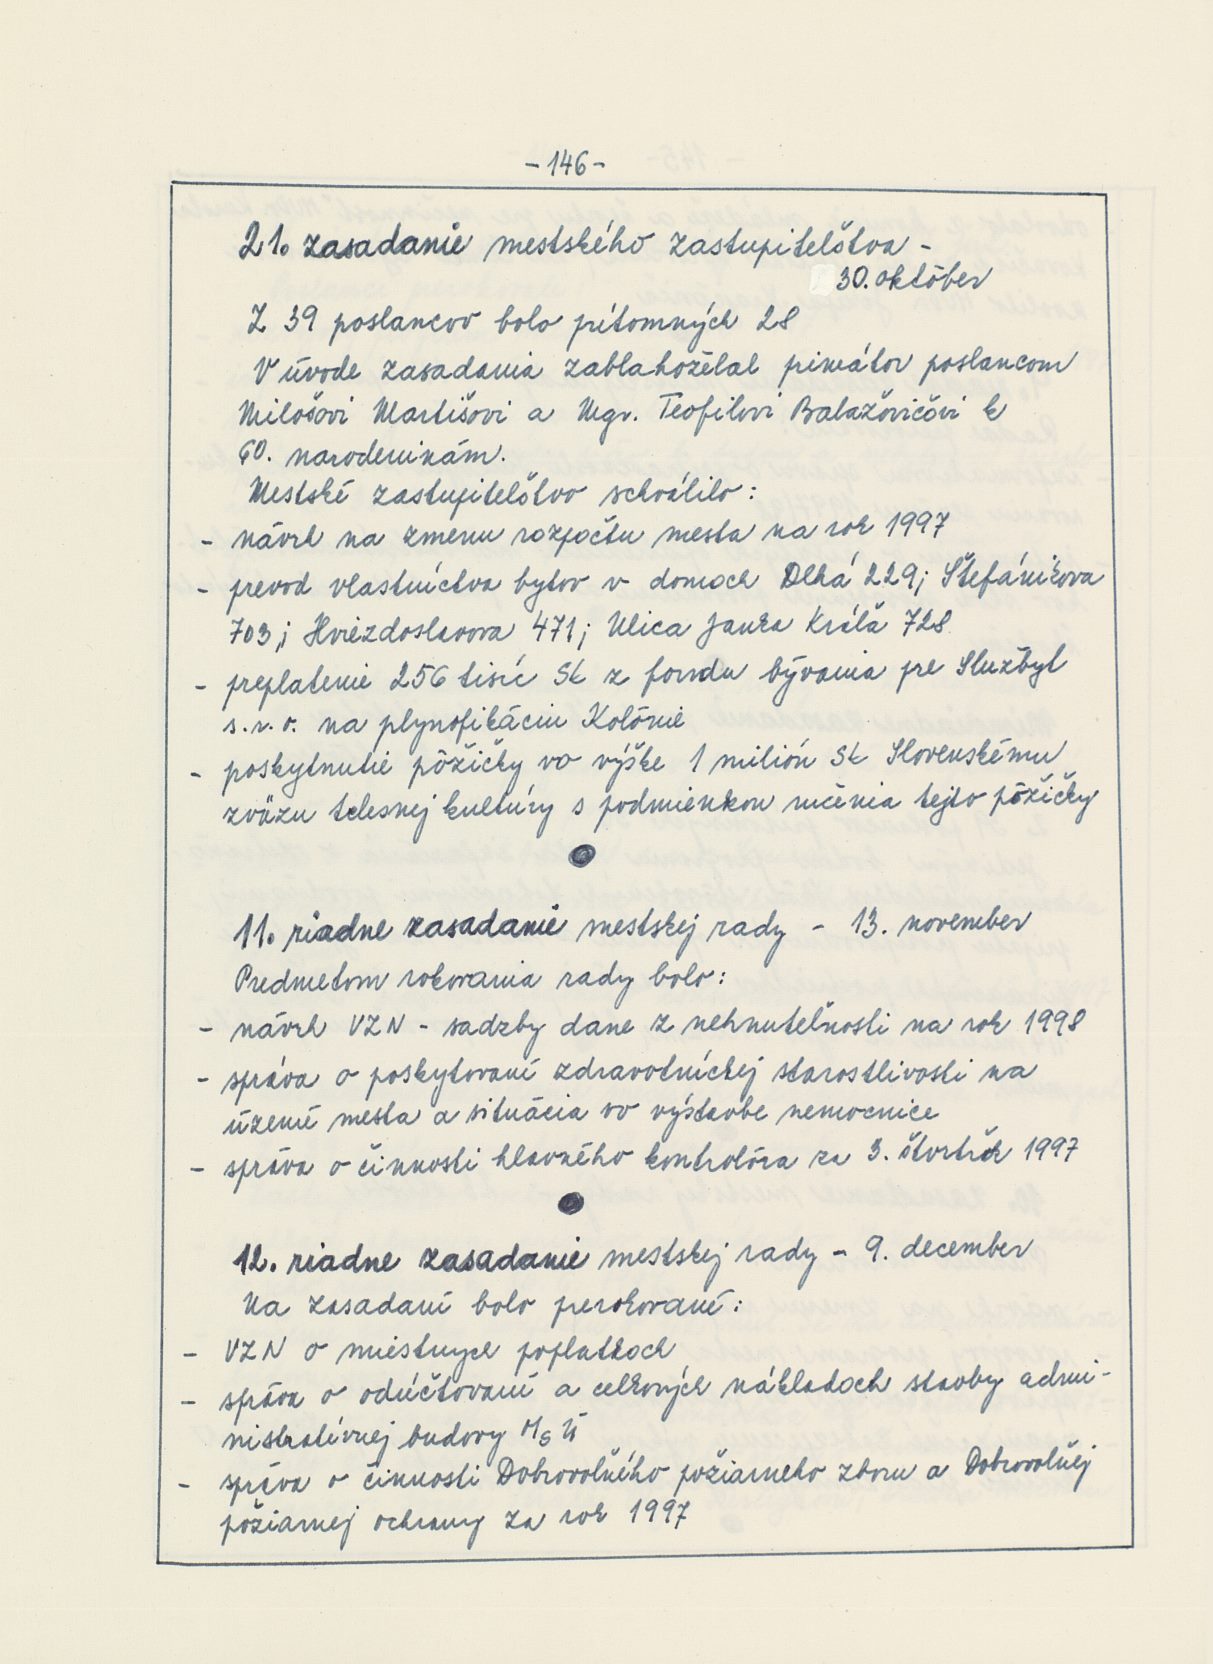 - 146 -
21. zasadanie mestského zastupiteľstva -
30. október
Z 39 poslancov bolo prítomných 28
V úvode zasadania zablahoželal primátor poslancom
Milošovi Martišovi a Mgr. Teofilovi Balažovičovi k
60. narodeninám.
Mestské zastupiteľstvo schválilo:
- návrh na zmenu rozpočtu mesta na rok 1997
- prevod vlastníctva bytov v domoch Dlhá 229; Štefánikova
703; Hviezdoslavova 471; Ulica Janka Kráľa 728
- preplatenie 256 tisíc Sk z fondu bývania pre Službyt
s.r.o. na plynofikáciu Kolónie
- poskytnutie pôžičky vo výške 1 milión Sk Slovenskému
zväzu telesnej kultúry s podmienkou ručenia tejto pôžičky
11. riadne zasadanie mestskej rady - 13. november
Predmetom rokovania rady bolo:
- návrh VZN - sadzby dane z nehnuteľnosti na rok 1998
- správa o poskytovaní zdravotníckej starostlivosti na
území mesta a situácia vo výstavbe nemocnice
- správa o činnosti hlavného kontrolóra za 3. štvrťrok 1997
12. riadne zasadanie mestskej rady - 9. december
Na zasadaní bolo prerokované:
- VZN o miestnych poplatkoch
- správa o odúčtovaní a celkových nákladoch stavby admi-
nistratívnej budovy MsÚ
- správa o činnosti Dobrovoľného požiarneho zboru a Dobrovoľnej
požiarnej ochrany za rok 1997